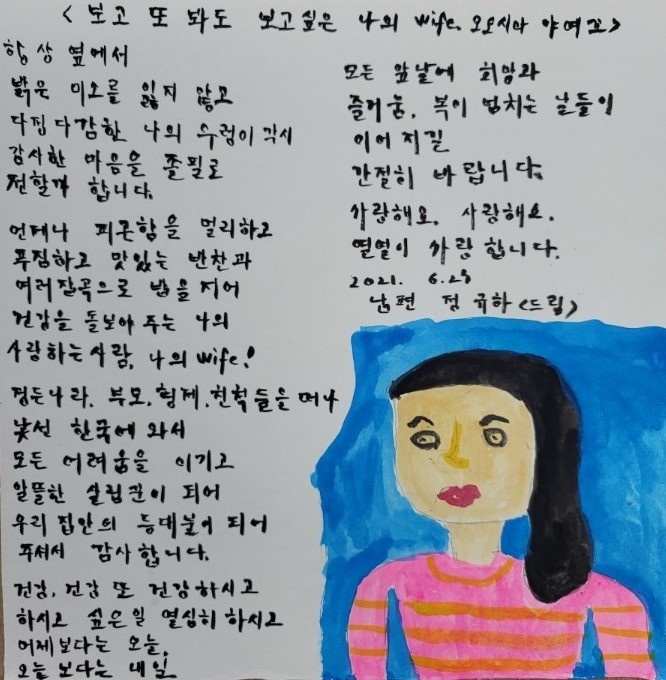 < 보고 또 봐도 보고싶은 나의 wife. 오오시마 야여꼬 >
항상 옆에서
밝은 미소를 잃지 않고
다정다감한 나의 우렁이각시
감사한 마음을 졸필로
전할까 합니다.
언제나 피곤함을 멀리하고
푸짐하고 맛있는 반찬과
여러잡곡으로 밥을 지어
건강을 돌보아 주는 나의
사랑하는사람, 나의 wife!
정든나라. 부모.형제.친척들을 떠나
낯선 한국에 와서
모든 어려움을 이기고
알뜰한 살림꾼이 되어
우리 집안의 등대불이 되어
주셔서 감사합니다.
건강. 건강 또 건강하시고
하시고 싶은일 열심히 하시고
어제보다는 오늘.
오늘 보다는 내일
모든 앞날에 희망과
즐거움. 복이 넘치는 날들이
이어지길
간절히 바랍니다.
사랑해요. 사랑해요.
열열이 사랑합니다.
2021. 6.29
남편 정규하<드림>